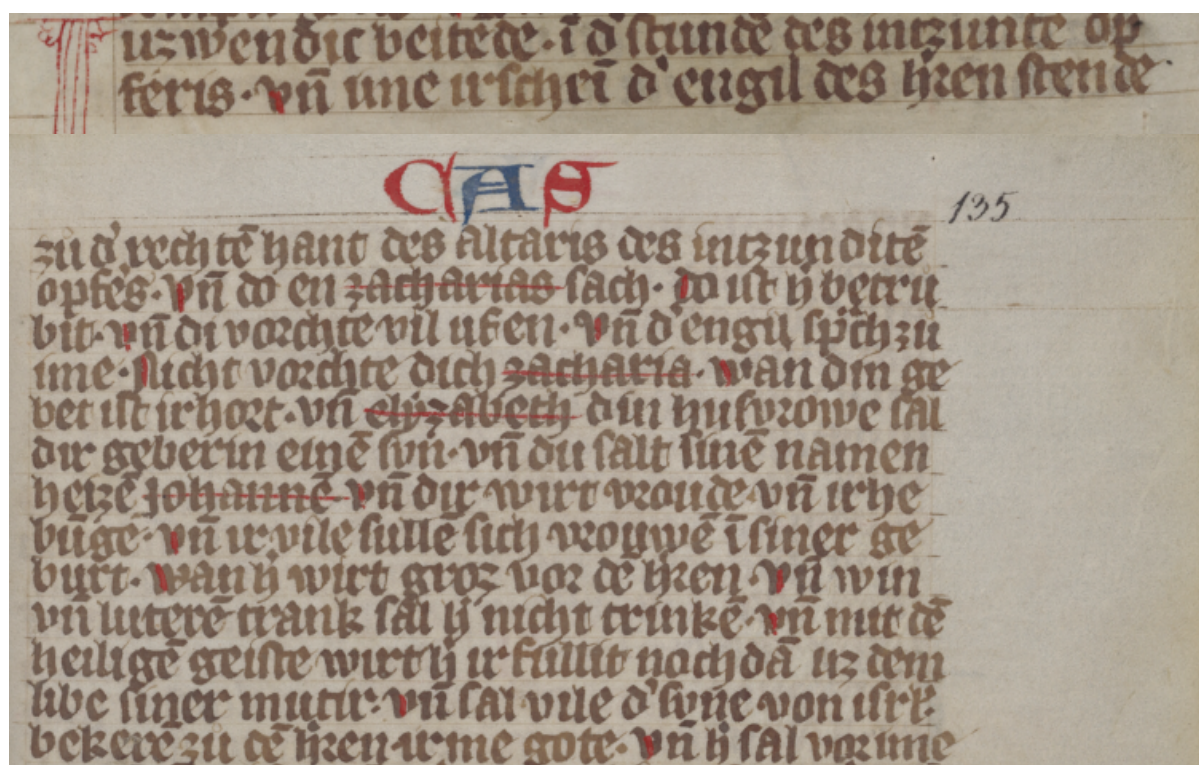 uzwendic beitede · ī d' stunde des intzunte op
feris · vn̄ ime irscheī d' engil des h'ren stende
CAS
135
zu d' rechtē hant des altaris des intzunditē
opfers · vn̄ do en zacharias sach · do ist h' betru
bit · vn̄ di vorchte vil uf en · vn̄ d' engil sp'ch zu
ime · nicht vorchte dich zacharia · wan din ge
bet ist irhort · vn̄ elyzabeth din husvrowe sal
dir geberin einē svn · vn̄ du salt sinē namen
heizē johannē vn̄ dir wirt vroude vn̄ irhe
būge · vn̄ ir vile sullē sich vrouwē ī siner ge
burt · wan h' wirt groz vor dē h'ren · vn̄ win
vn̄ luterē trank sal h' nicht trinkē · vn̄ mit dē
heiligē geiste wirt h' irfullit noch dā uz dem
libe siner mutir · vn̄ sal vile d' svne von isrl'
bekerē zu dē h'ren irme gote · vn̄ h' sal vor ime